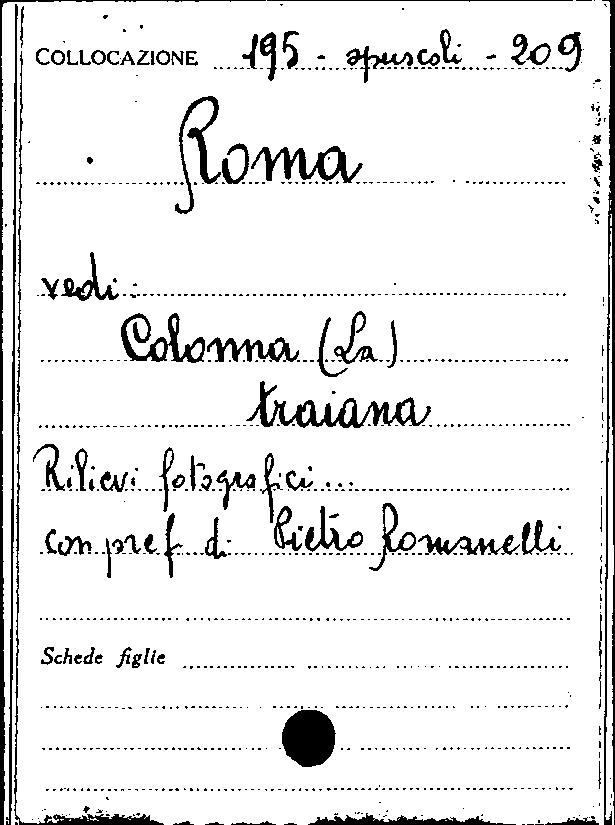 COLLOCAZIONE 195 - opuscoli - 209
Roma
vedi:
Colonna (La)
traiana
Rilievi fotografici...
con pref di Pietro Romanelli
Schede figlie